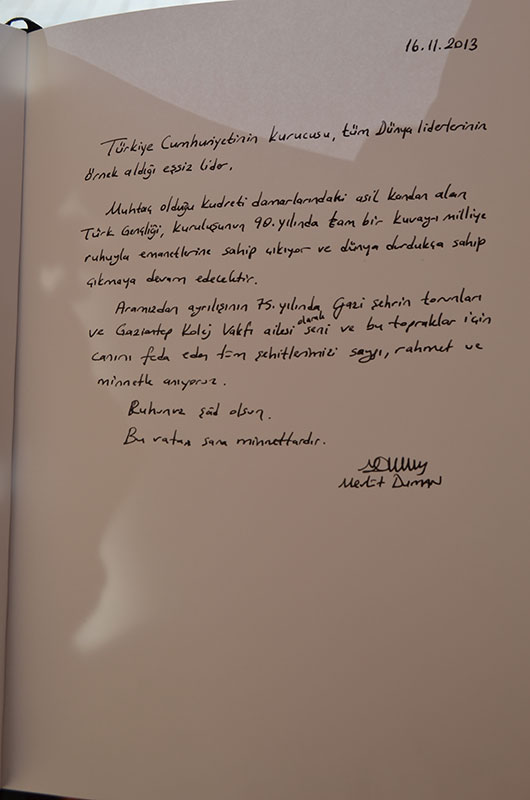 16.11.2013
Türkiye Cumhuriyetinin kurucusu, tüm Dünya liderlerinin
örnek aldığı eşsiz lider,
Muhtaç olduğu kudreti damarlarındaki asil kandan alan
Türk Gençliği, kuruluşunun 90. yılında tam bir kuvayı milliye
ruhuyla emanetlerine sahip çıkıyor ve dünya durdukça sahip
çıkmaya devam edecektir.
Aramızdan ayrılışının 75. yılında Gazi şehrin torunları
ve Gaziantep Kolej Vakfı ailesi olarak seni ve bu topraklar için
canını feda eden tüm şehitlerimizi saygı, rahmet ve
minnetle anıyoruz.
Ruhunuz şâd olsun.
Bu vatan sana minnettardır.
Duman